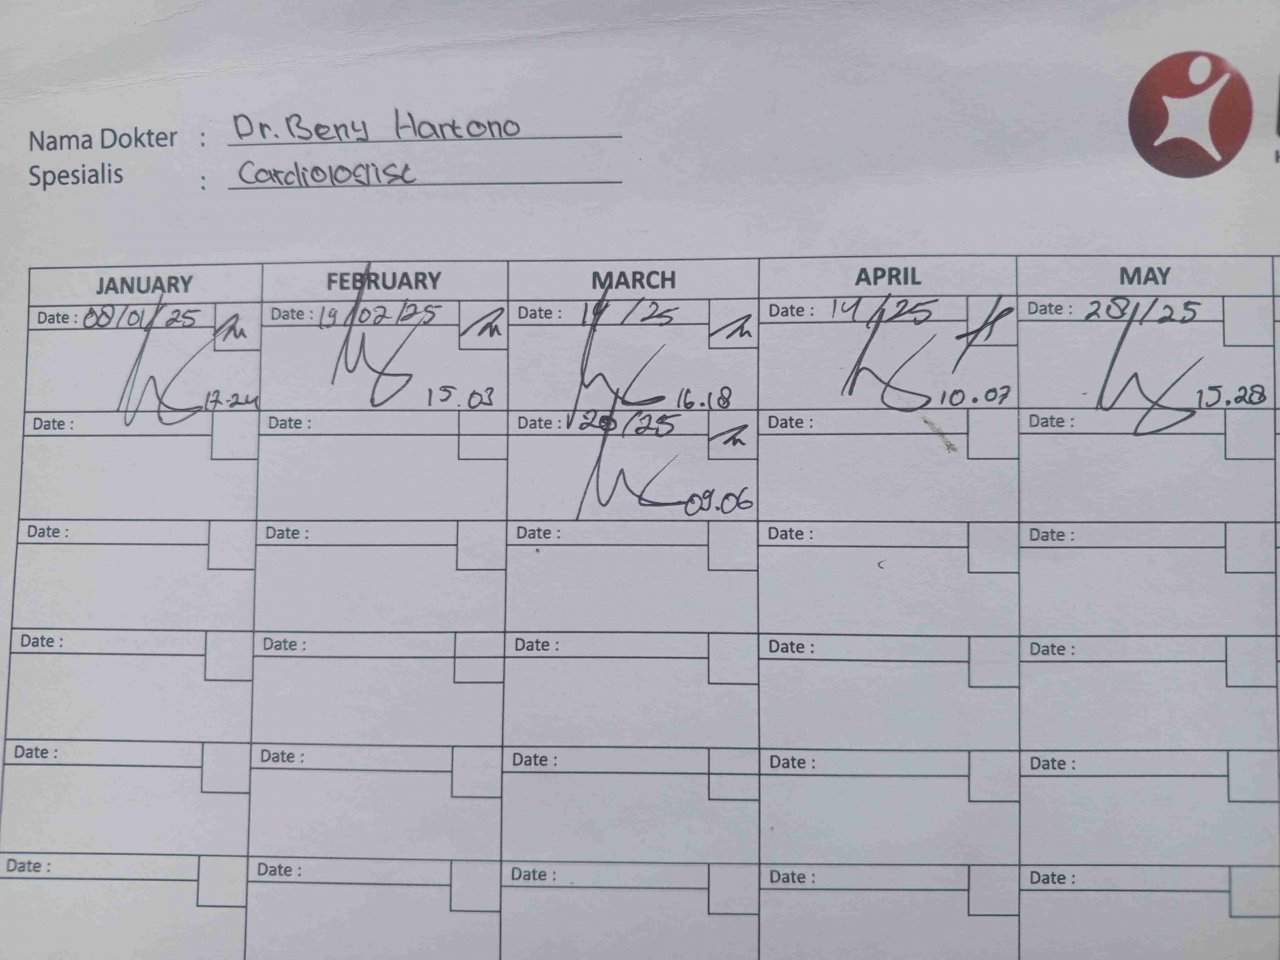 Nama Dokter : Dr. Beny Hartono
Spesialis : Cardiologist
JANUARY FEBRUARY MARCH APRIL MAY
Date : 08/01/25 Date : 19/02/25 Date : 19/25 Date : 14/25 Date : 28/25
17-24 15.03 16.18 10.07 15.28
Date : Date : Date : 26/25 Date : Date :
09.06
Date : Date : Date : Date : Date :
Date : Date : Date : Date : Date :
Date : Date : Date : Date : Date :
Date : Date : Date : Date : Date :